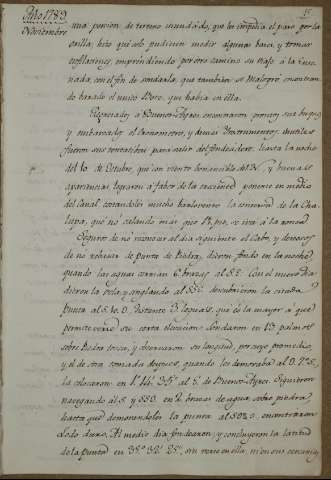 Año 1789
Noviembre
15
una porcion de terreno inundado, que les impedia el paso por la
orilla; hizo que solo pudiesen medir algunas bases y tomar
enfilaciones, emprendiendo por otro camino su viaje à la Ense-
nada, con el fin de sondarla, que tambien se malogró encontran-
do barado el unico Bote, que habia en ella.
Regresados a Buenos-Ayres encontraron prontos sus buques
y embarcados el Cronometro, y demas Instrumentos, inutiles
fueron sus tentativas para salir del fondeadero, hasta la noche
del 10 de Octubre, que con viento bonancible del N, y buenas
apariencias lograron à fabor de la creciente ponerse en medio
del Canal, costandoles mucho
que no calando mas que 12 pies, se iva à la ronza
Seguros de no montar al dia siguiente el Cabo, y deseosos
de no rebasar de punta de Piedras, dieron fondo en la noche,
quando las aguas corrian 6 brazas al S.E. Con el nuevo dia
dieron la vela, y navegando al SSE. descubrieron la citada
Punta al S. distante 3 leguas, que es la mayor a que
permite verse su corta elevacion: sondaron en 13 palmos
sobre Piedra tosca, y observaron su longitud, por cuyo promedio,
y el de otra tomada despues, quando les demoraba al O. 7º S.,
la colocaron en 1º 14' 35" al E. de Buenos-Ayres. Siguieron
navegando al S. y SSO. en 2 brazas de agua, sobre piedra,
hasta que demorandoles la punta al SO encontraron
lodo duro. Al medio dia fondearon, y concluyeron la latitud
de la Punta en 35º 32' 25", sin verse en ella, ni en sus cercanias